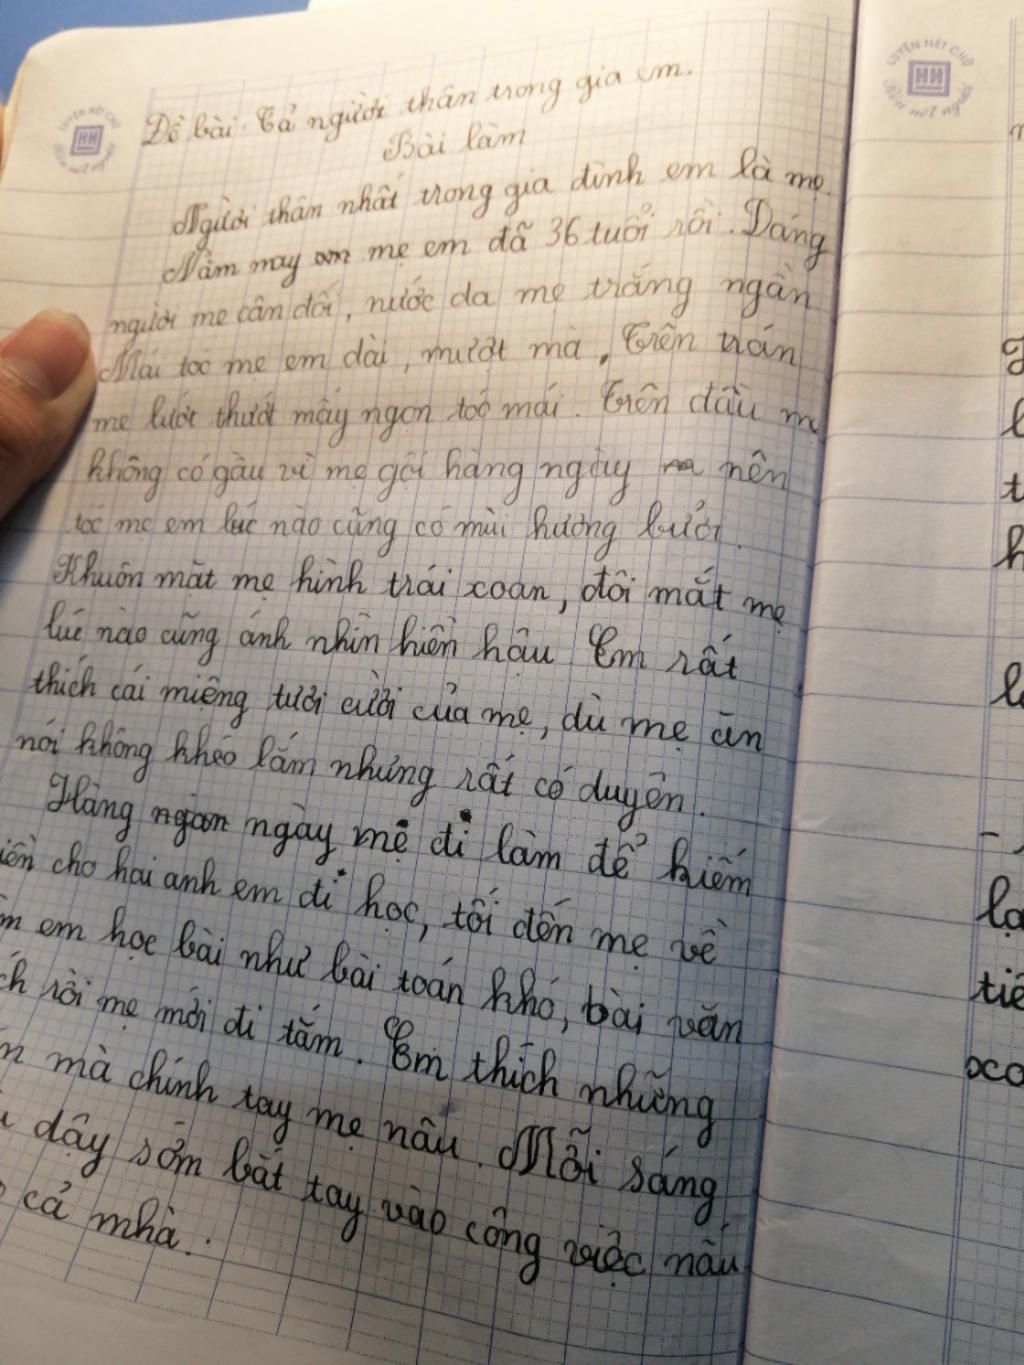 LUYỆN NÉT CHỮ
HH
LUYỆN NÉT CHỮ
HH
Rèn nết người
Đề bài: Tả người thân trong gia em.
Bài làm
Người thân nhất trong gia đình em là mẹ.
Năm nay mẹ em đã 36 tuổi rồi. Dáng
người mẹ cân đối, nước da mẹ trắng ngần
Mái tóc mẹ em dài, mượt mà, Trên trán
mẹ lướt thướt mấy ngọn toó mái. Trên đầu mẹ
không có gầu vì mẹ gội hàng ngày nên
tóc mẹ em lúc nào cũng có mùi hương bưởi.
Khuôn mặt mẹ hình trái xoan, đôi mắt mẹ
lúc nào cũng ánh nhìn hiền hậu Em rất
thích cái miệng tươi cười của mẹ, dù mẹ ăn
nói không khéo lắm nhưng rất có duyên.
Hàng ngày mẹ đi làm để kiếm
iền cho hai anh em đi học, tối đến mẹ về
m em học bài như bài toán khó, bài văn
ch rồi mẹ mới đi tắm. Em thích những
n mà chính tay mẹ nấu. Mỗi sáng
dậy sớm bắt tay vào công việc nấu
cả nhà.
h
lạ
tiế
xo